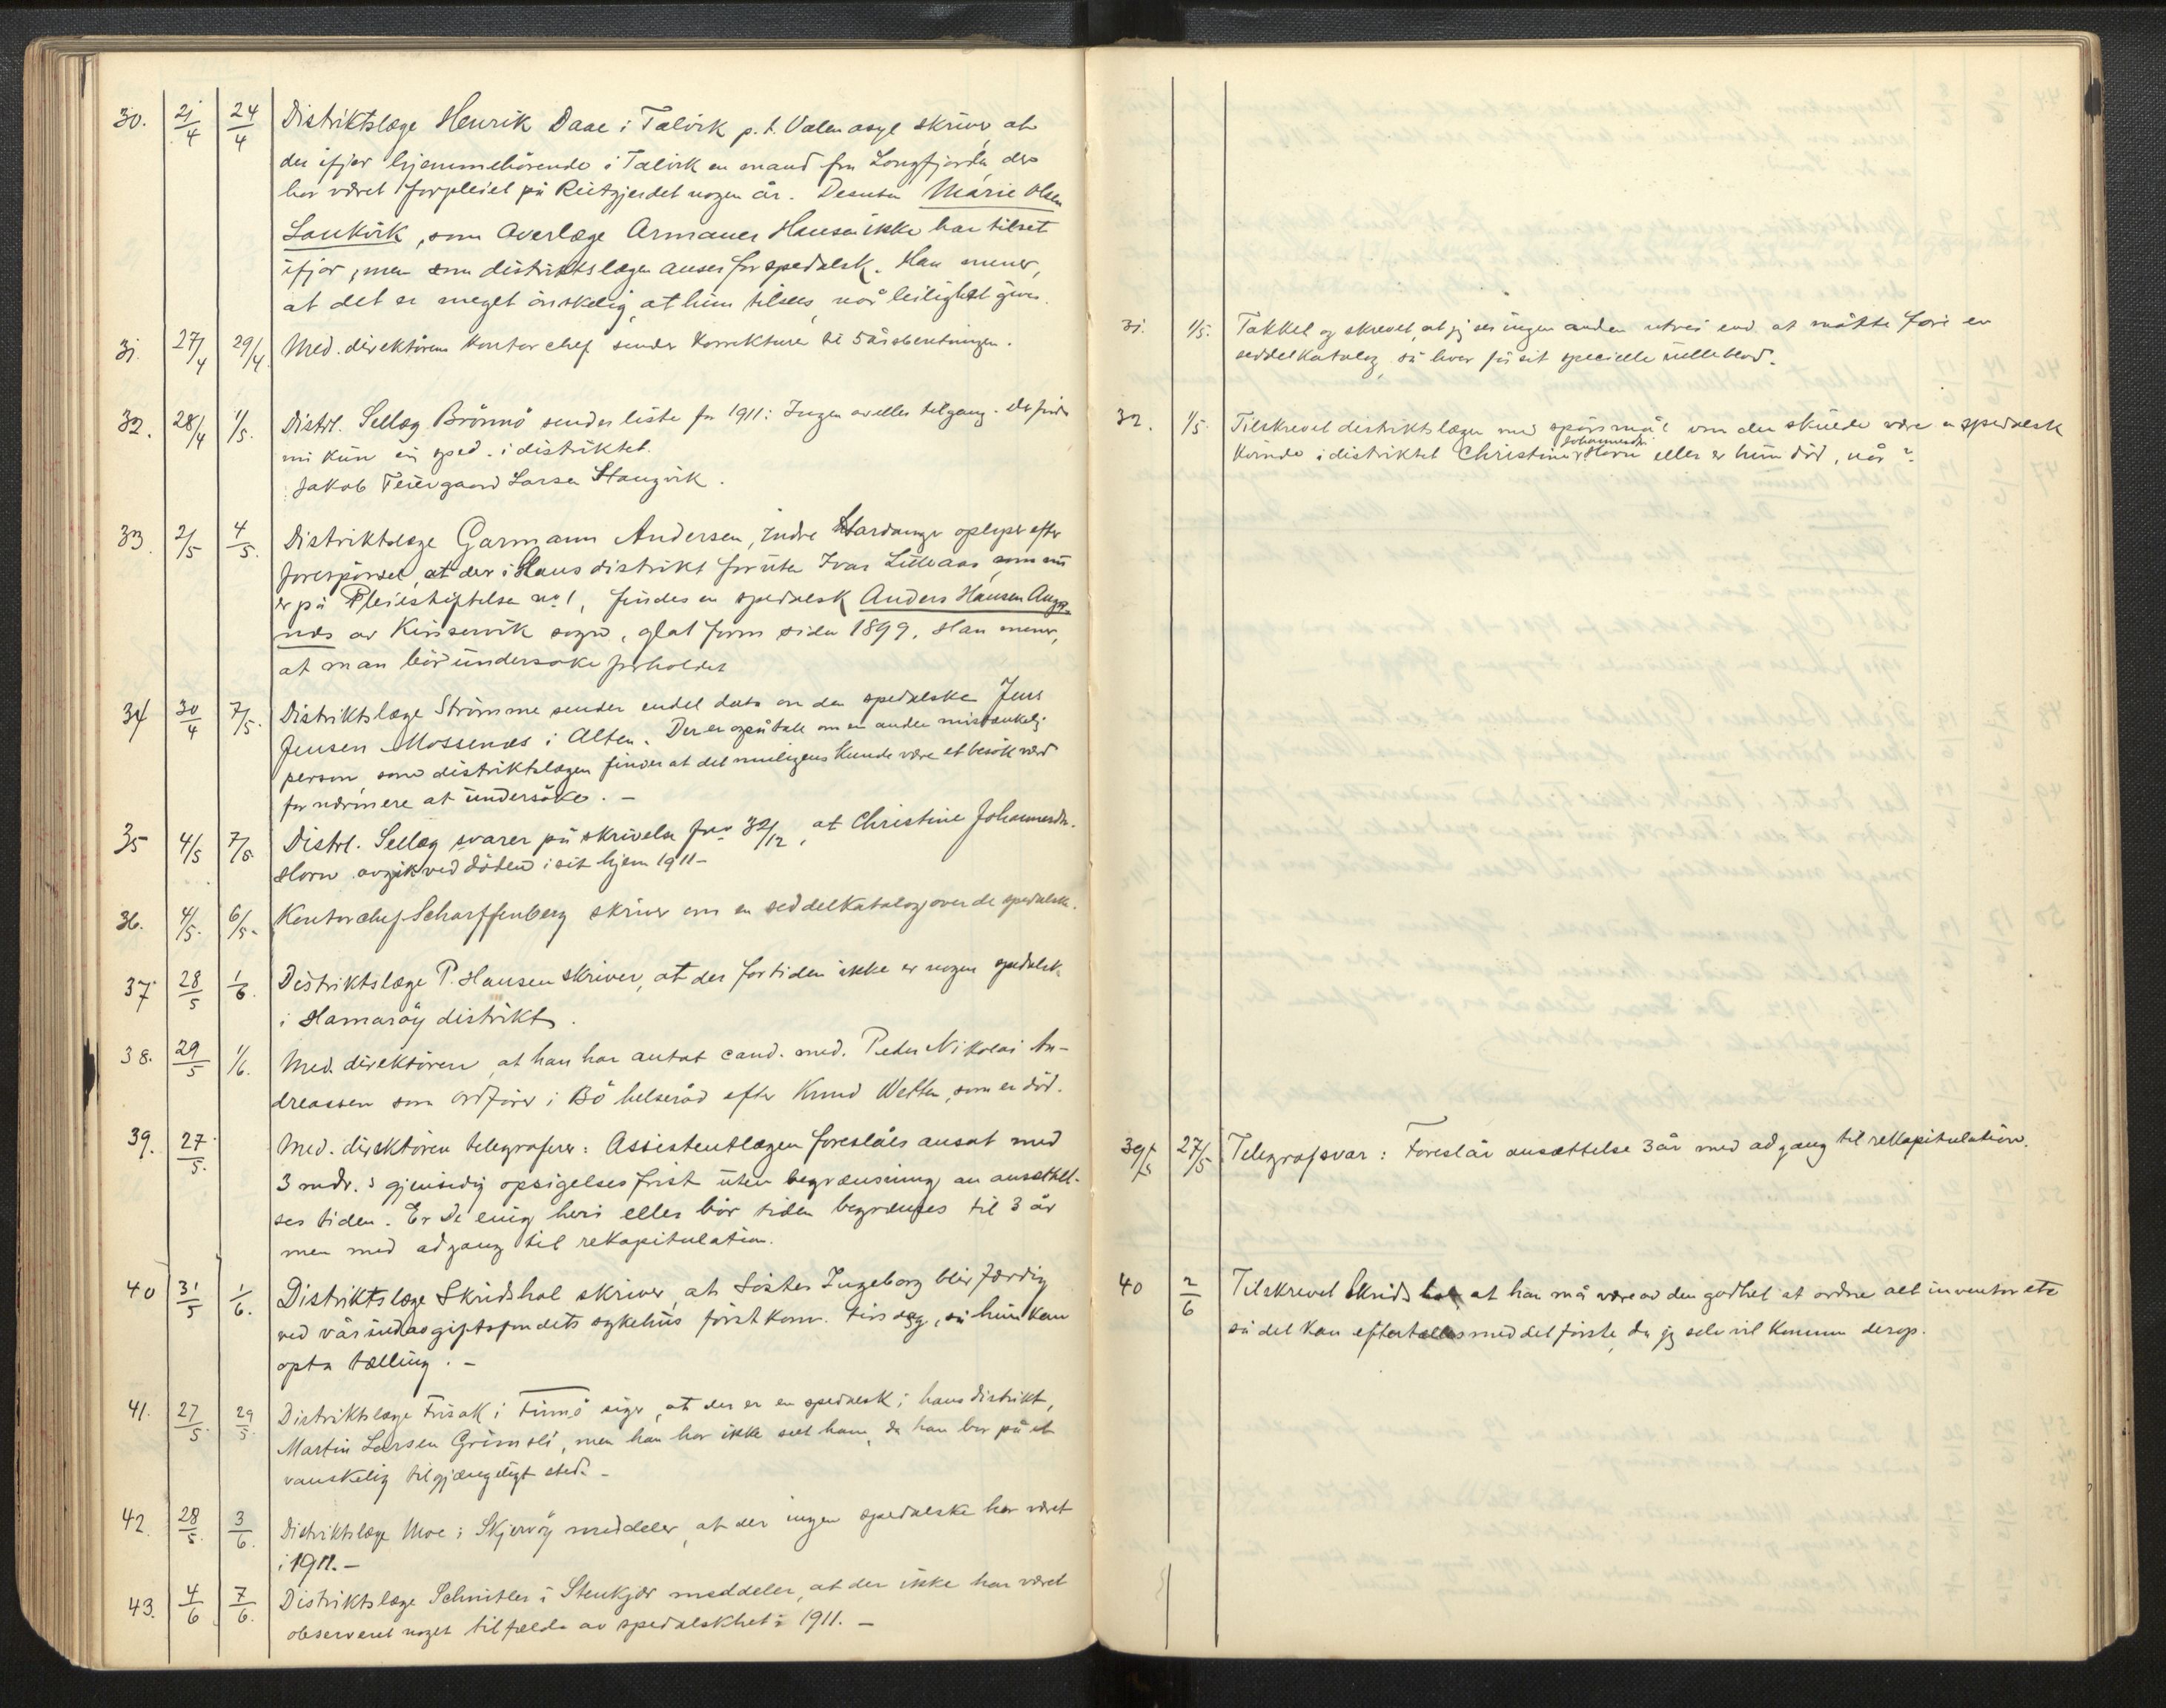 30. 21/4 24/4 Distriktslæge Henrik Daae i Talvik p.t. Valen asyl skriver, at
der ifjor hjemmehörende i Talvik en mand fra Langfjorden der
har været forpleiet på Reitgjerdet nogen år. Desuten Marie Olsen
Lankvik, som Overlæge Armauer Hansen ikke har tilset
ifjor, men som distriktslægen anser for spedalsk. Han mener,
at det er meget önskelig, at hun tilsees, når leilighet gives.
31. 27/4 29/4. Med. direktörens kontorchef sender korrekturen til 5 årsberetningen.
32. 28/4 1/5. Distrl. Sellæg Brönnö sender liste for 1911: Ingen avelle tilgang. Der findes
nu kun en sped. i distriktet.
Jakob Teiergaard Larsen Stangvik.
33. 2/5 4/5. Distriktslæge Garmann Andersen, Indre Hardanger oplyser efter
forespörsel, at der i Hans distrikt foruten Ivar Lilleaas, som nu
er på Pleiestiftelsen no 1, findes en spedalsk Anders Hansen Auga-
næs av Kinservik sogn, glat form siden 1899. Han mener,
at man bör undersöke forholdet
34 30/4 7/5. Distriktslæge Strömme sender endel data om den spedalske Jens
Jensen Mossenæs i Alten. Der er også tale om en anden mistænkelig
person, som distriktslægen finder at det muligens kunde være et besök værd
for nærmere at undersöke. –
35 4/5 7/5 Distrl. Sellæg svarer på skrivelse fra 32/12, at Christine Johannesdtr.
Horn avgik ved döden i sit hjem 1911 –
36. 4/5. 6/5. Kontorchef Scharffenberg skriver om en seddelkatalog over de spedalske.
37 28/5 1/6. Distriktslæge P. Hansen skriver, at der for tiden ikke er nogen spedalsk
i Hamaröy distrikt.
38. 29/5 1/6. Med. direktören, at han har antat cand. med. Peder Nikolai An-
dreassen som ordförer i Bö helseråd efter Knud Wetten, som er död.
39. 27/5. Med. direktören telegraferer: Assistentlægen foreslåes ansat med
3 mdr.s gjensidig opsigelsesfrist uten begrænsning av ansættel-
sestiden. Er De enig heri eller bör tiden begrænses til 3 år
men med adgang til rekapitulation.
40 31/5 1/6. Distriktslæge Skridshol skriver, at Söster Ingeborg blir færdig
ved vår indavgiftsfondets sykehus förstkom. tirsdag, så hun kan
opta tælling. –
41. 27/5. 29/5. Distriktslæge Frisak i Finnö siger, at der er en spedalsk i hans distrikt,
Martin Larsen Grimsli, men han har ikke set ham, da han bor på et
vanskelig tilgjængeligt sted. –
42. 28/5. 3/6. Distriktslæge Moe i Skjervöy meddeler, at der ingen spedalske har været
i 1911. –
43. 4/6 7/6. Distriktslæge Schnitler i Stenkjær meddeler, at der ikke har været
observeret noget tilfælde av spedalskhet i 1911. –
31. 1/5. Takket og skrevet, at jeg ser ingen anden utvei end at måtte före en
seddelkatalog, så hver får sit specielle tælleblad.
32. 1/5 Tilskrevet distriktslægen med spörsmål om der skulde være en spedalsk
kvinde i distriktet Christine Johannesdtr. Horn eller er hun död, når?
39/5 27/5 Telegrafsvar: Foreslår ansættelse 3 år med adgang til rekapitulation.
40 2/6 Tilskrevet Skridshol, at han må være av den godhet at ordne alt inventar etc
så det kan eftertælles med det förste, da jeg selv vil komme derop.